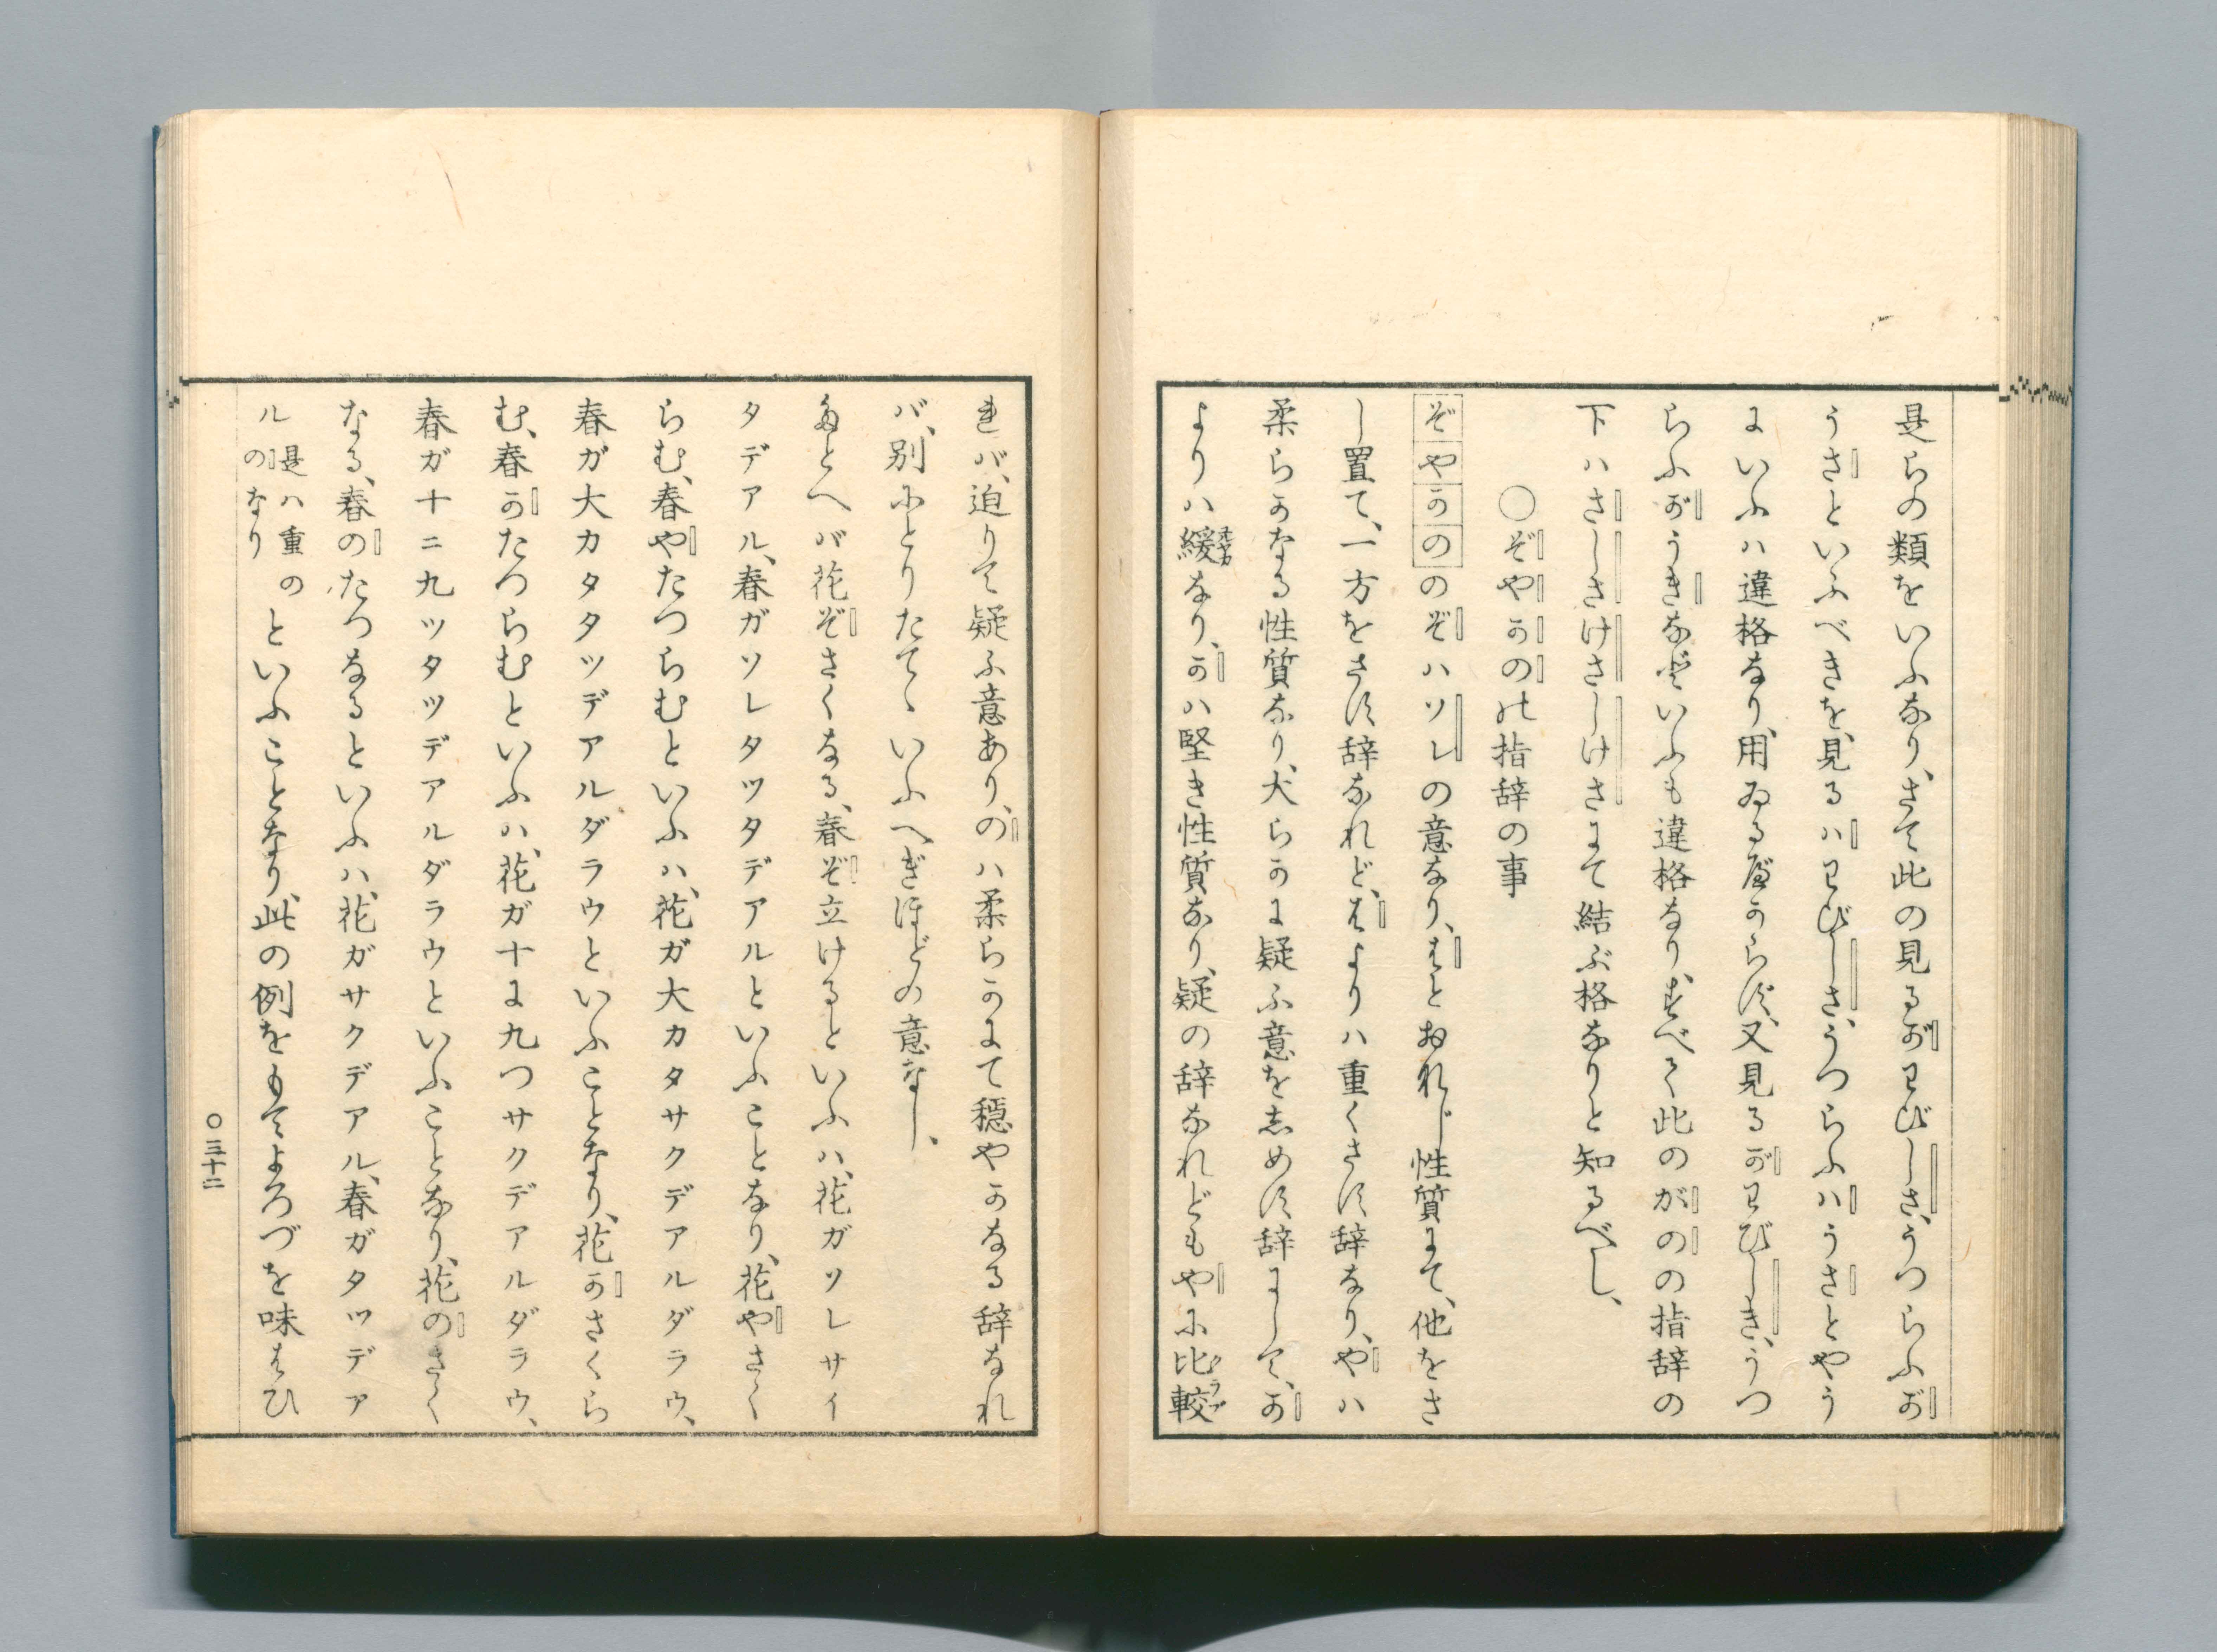 是らの類をいふなり、さて此の見るがわびしさ、うつらふが
うさといふべきを、見るハわびしさ、うつらふハうさとやう
にいふハ違格なり、用ゐるべからず、又見るがわびしき、うつ
らふがうきなどいふも違格なり、すべて此のがのの指辞の
下ハさしさけさしけさにて結ぶ格なりと知るべし、
○ぞやかのの指辞の事
ぞやかののぞハソレの意なり、はとおなじ性質にて、他をさ
し置て、一方をさす辞なれど、はよりハ重くさす辞なり、やハ
柔らかなる性質なり、大らかに疑ふ意をしめす辞にして、か
よりハ緩なり、かハ堅き性質なり、疑の辞なれどもやに比較
れバ、迫りて疑ふ意あり、のハ柔らかにて穏やかなる辞なれ
バ、別にとりたてゝいふへぎほどの意なし、
たとへバ花ぞさくなる、春ぞ立けるといふハ、花ガソレサイ
タデアル、春ガソレタツタデアルといふことなり、花やさく
らむ、春やたつらむといふハ、花ガ大カタサクデアルダラウ、
春ガ大カタタツデアルダラウといふことなり、花かさくら
む、春かたつらむといふハ、花ガ十に九つサクデアルダラウ、
春ガ十ニ九ツタツデアルダラウといふことなり、花のさく
なる、春のたつなるといふハ、花ガサクデアル、春ガタツデア
ル是ハ重ののなりといふことなり、此の例をもてよろづを味はひ
○三十二